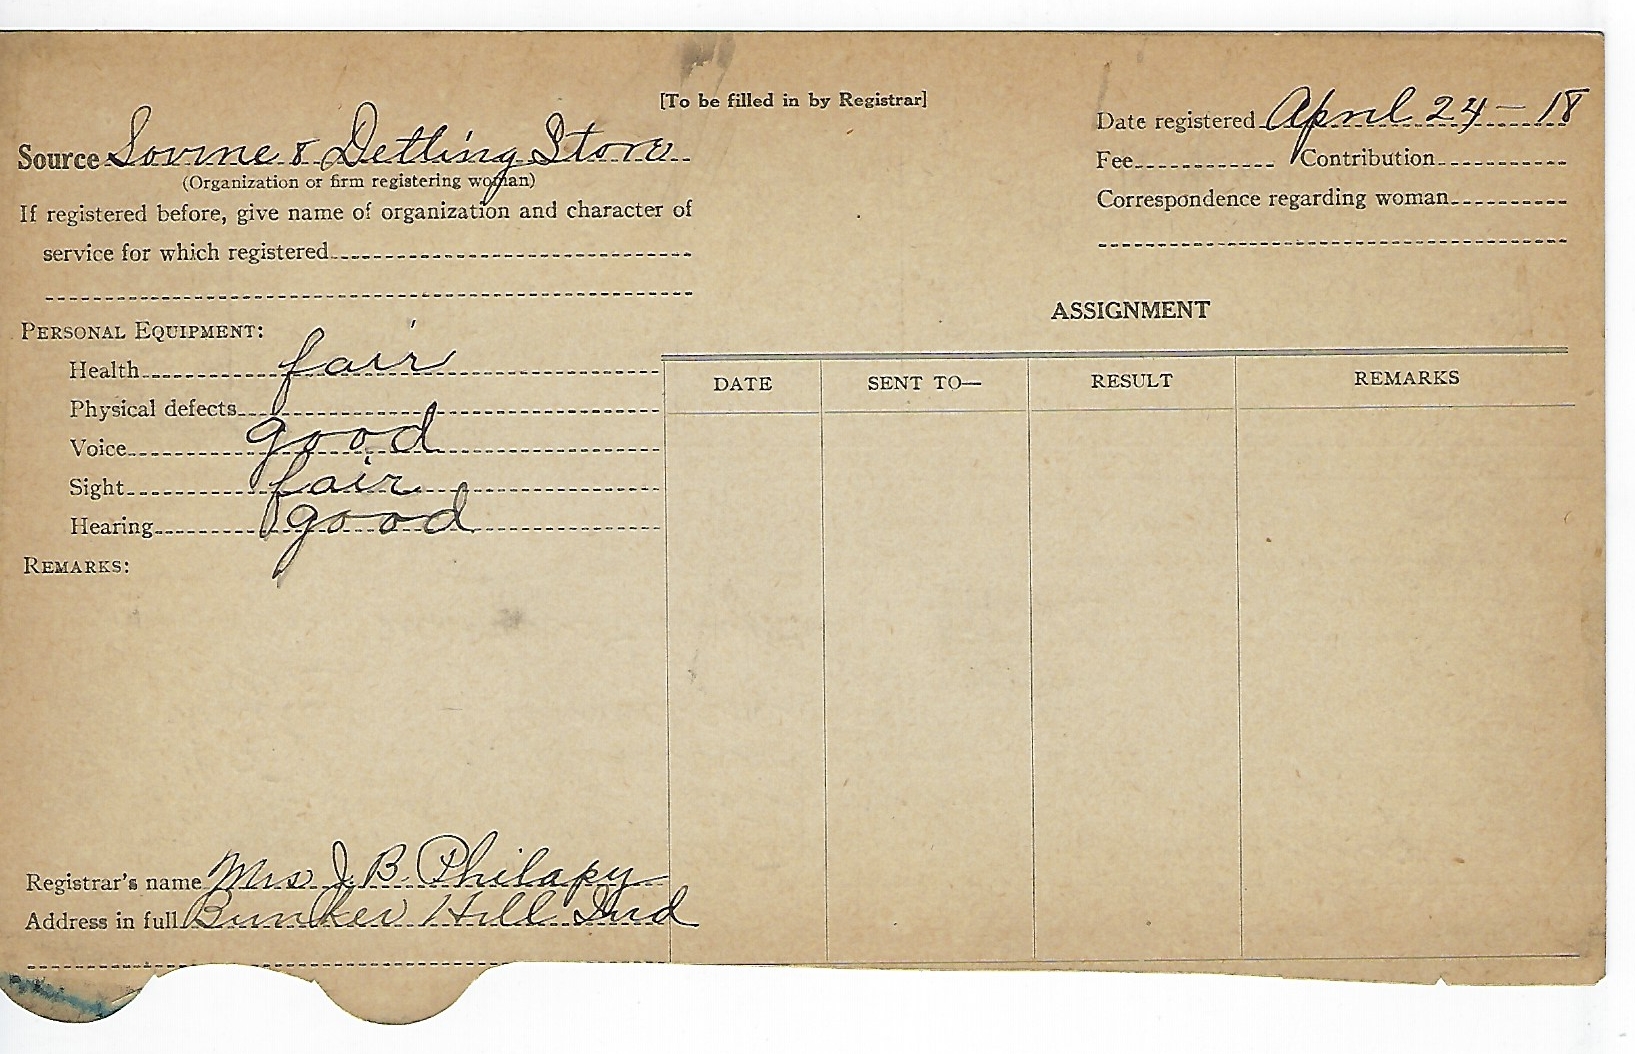 [To be filled in by Registrar]
Source Lovine & Detling Store
(Organization or firm registering woman)
If registered before, give name of organization and character of
service for which registered
PERSONAL EQUIPMENT:
Health fair
Physical defects
Voice good
Sight fair
Hearing good
REMARKS:
Registrar's name Mrs J. B. Philapy
Address in full Bunker Hill Ind
Date registered April 24 - 18
Fee Contribution
Correspondence regarding woman
ASSIGNMENT
DATE SENT TO— RESULT REMARKS